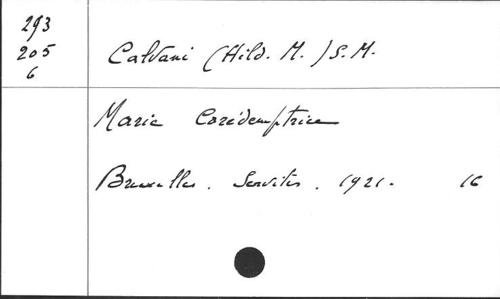 293
205
6
Calvani (Hild. M.) S. M.
Marie Corédemptrice
Bruxelles. Servites. 1921. 16